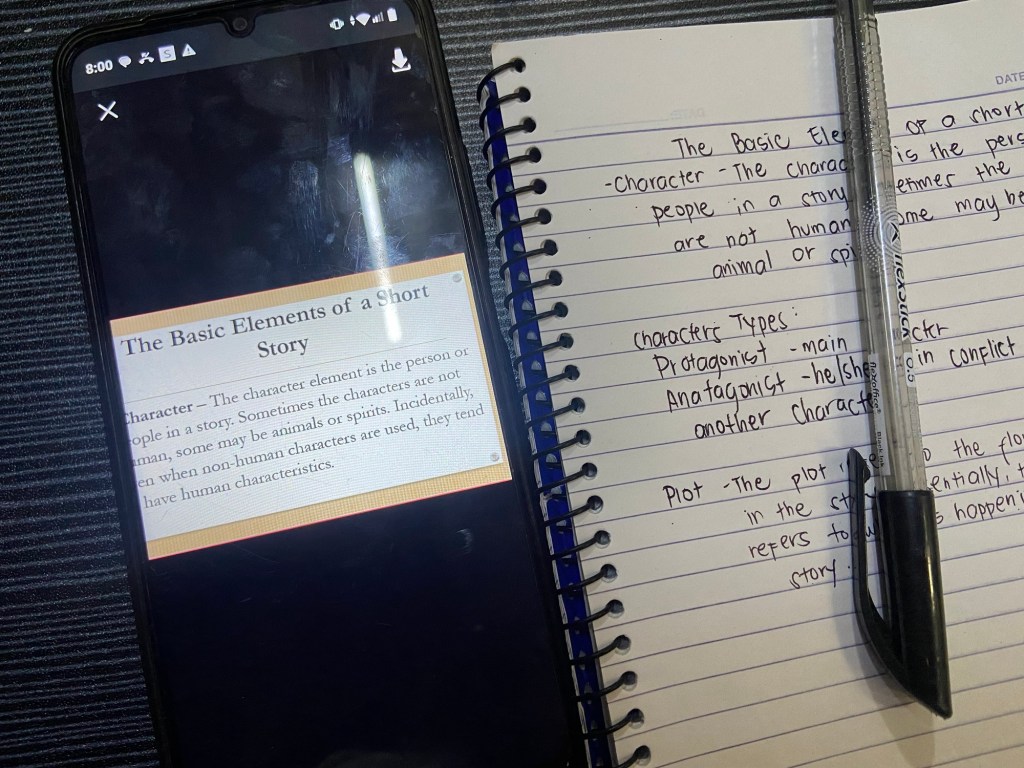 8:00
The Basic Elements of a Short
Story
Character – The character element is the person or
ople in a story. Sometimes the characters are not
man, some may be animals or spirits. Incidentally,
en when non-human characters are used, they tend
have human characteristics.
DATE
The Basic Ele of a short
-Character - The charac is the pers
people in a story etimes the
are not human ome may be
animal or spi
Characters Types:
Protagonist - main cter
Anatagonist - he/she in conflict
another characte
Plot - The plot the flo
in the sto entially, t
refers to happeni
story.
flexstick 0.5
flexoffice